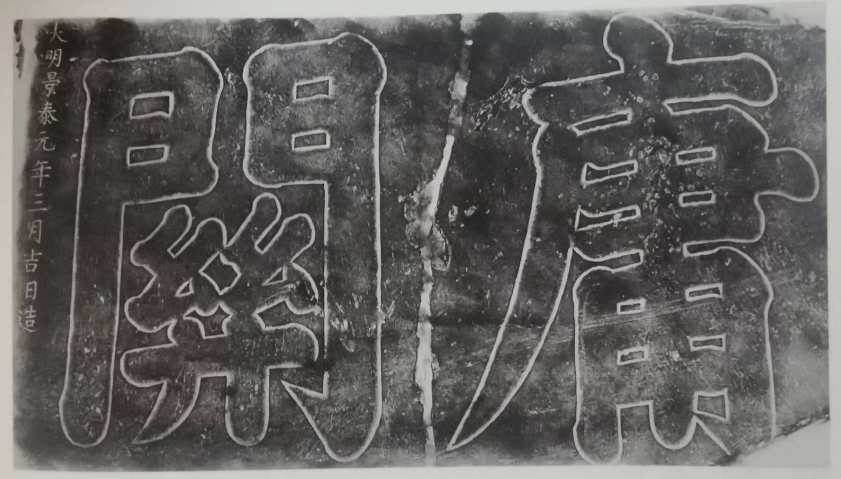 庸關
大明景泰元年三月吉日造